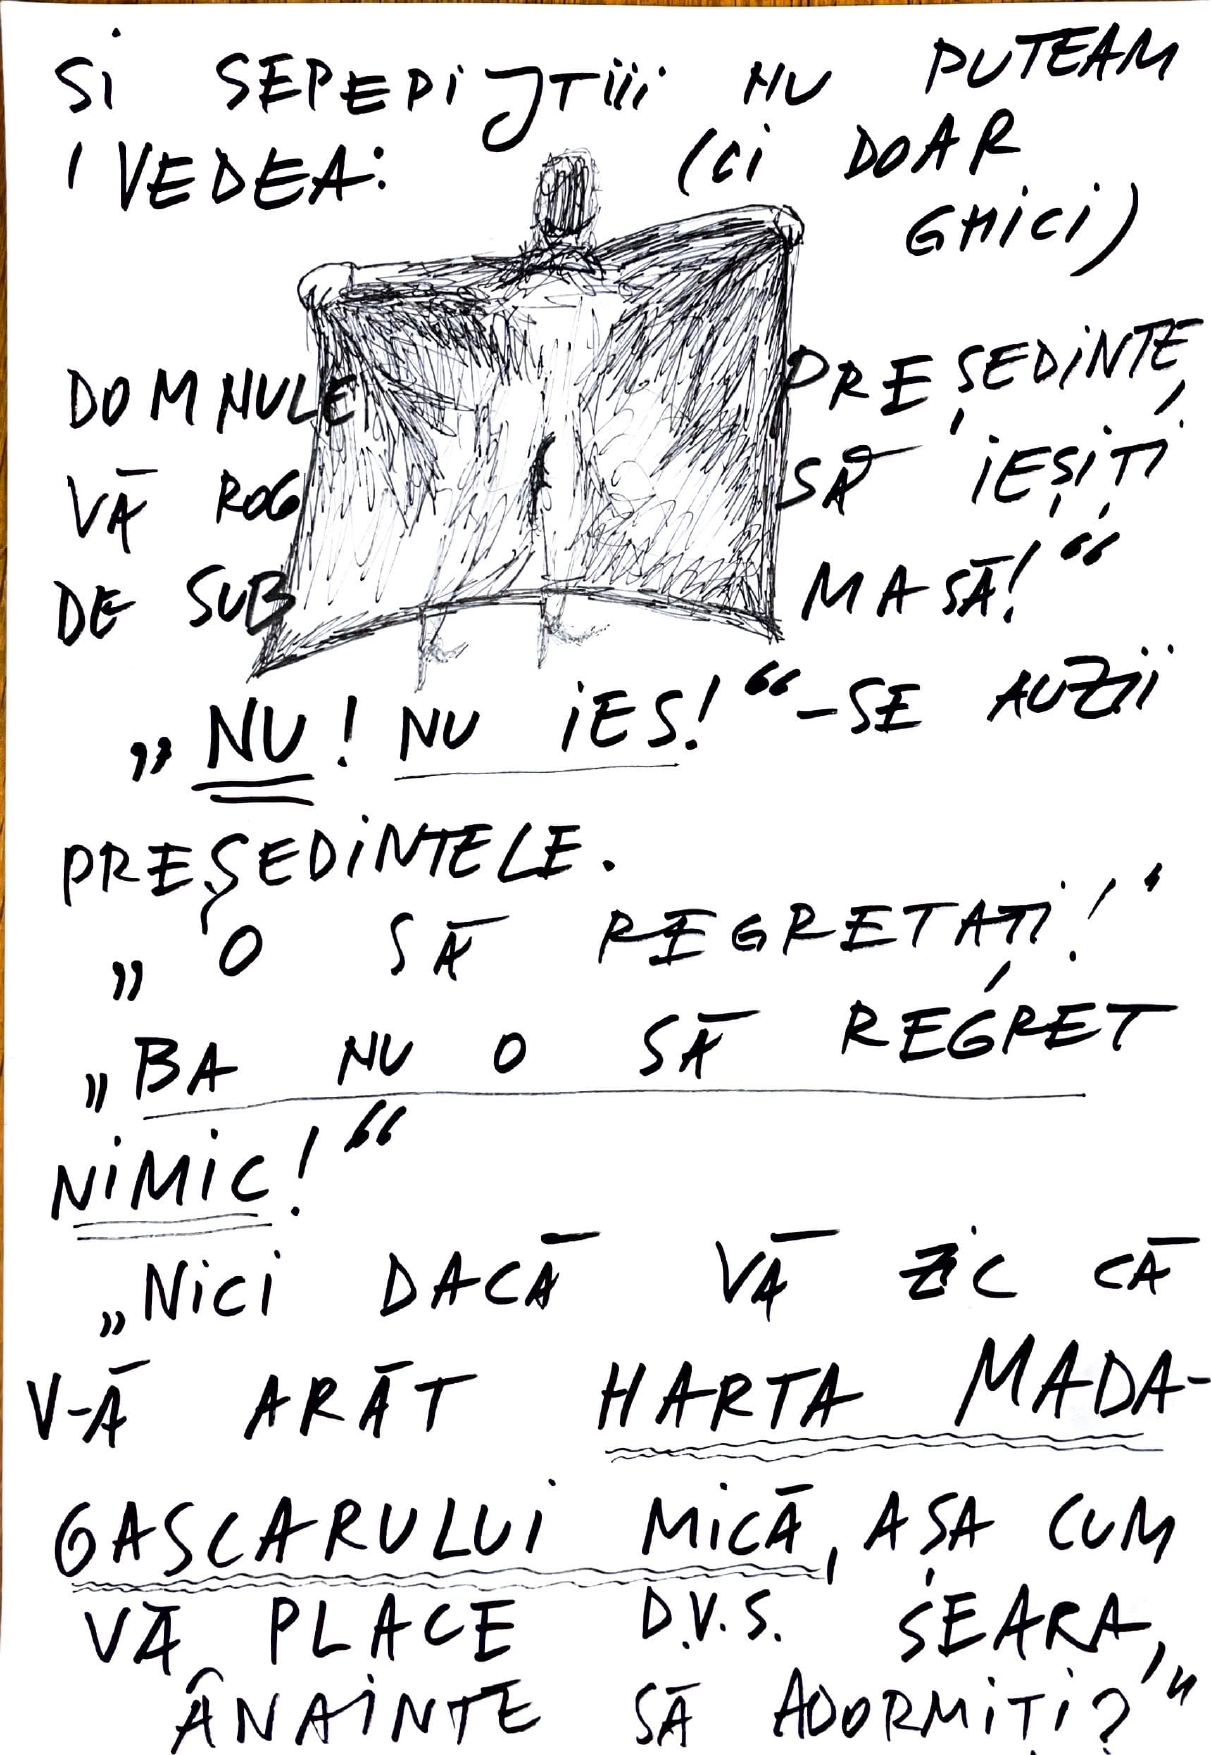 Si SEPEPiJTiii NU PUTEAM
VEDEA: (Ci DOAR
GHiCi)
DOMNULE PREȘEDiNTE,
VĀ ROG SĀ iEȘiȚi
DE SUB MASĀ!“
„NU! NU iES!“ -SE AUZii
PREȘEDiNTELE.
„O SĀ REGRETAȚi!“
„BA NU O SĀ REGRET
NiMiC!“
„NiCi DACĀ VĀ ZiC CĀ
V-Ā ARĀT HARTA MADA-
GASCARULUi MiCĀ, AȘA CUM
VĀ PLACE D.V.S. SEARA,
ÂNAiNTE SĀ ADORMiȚi?“